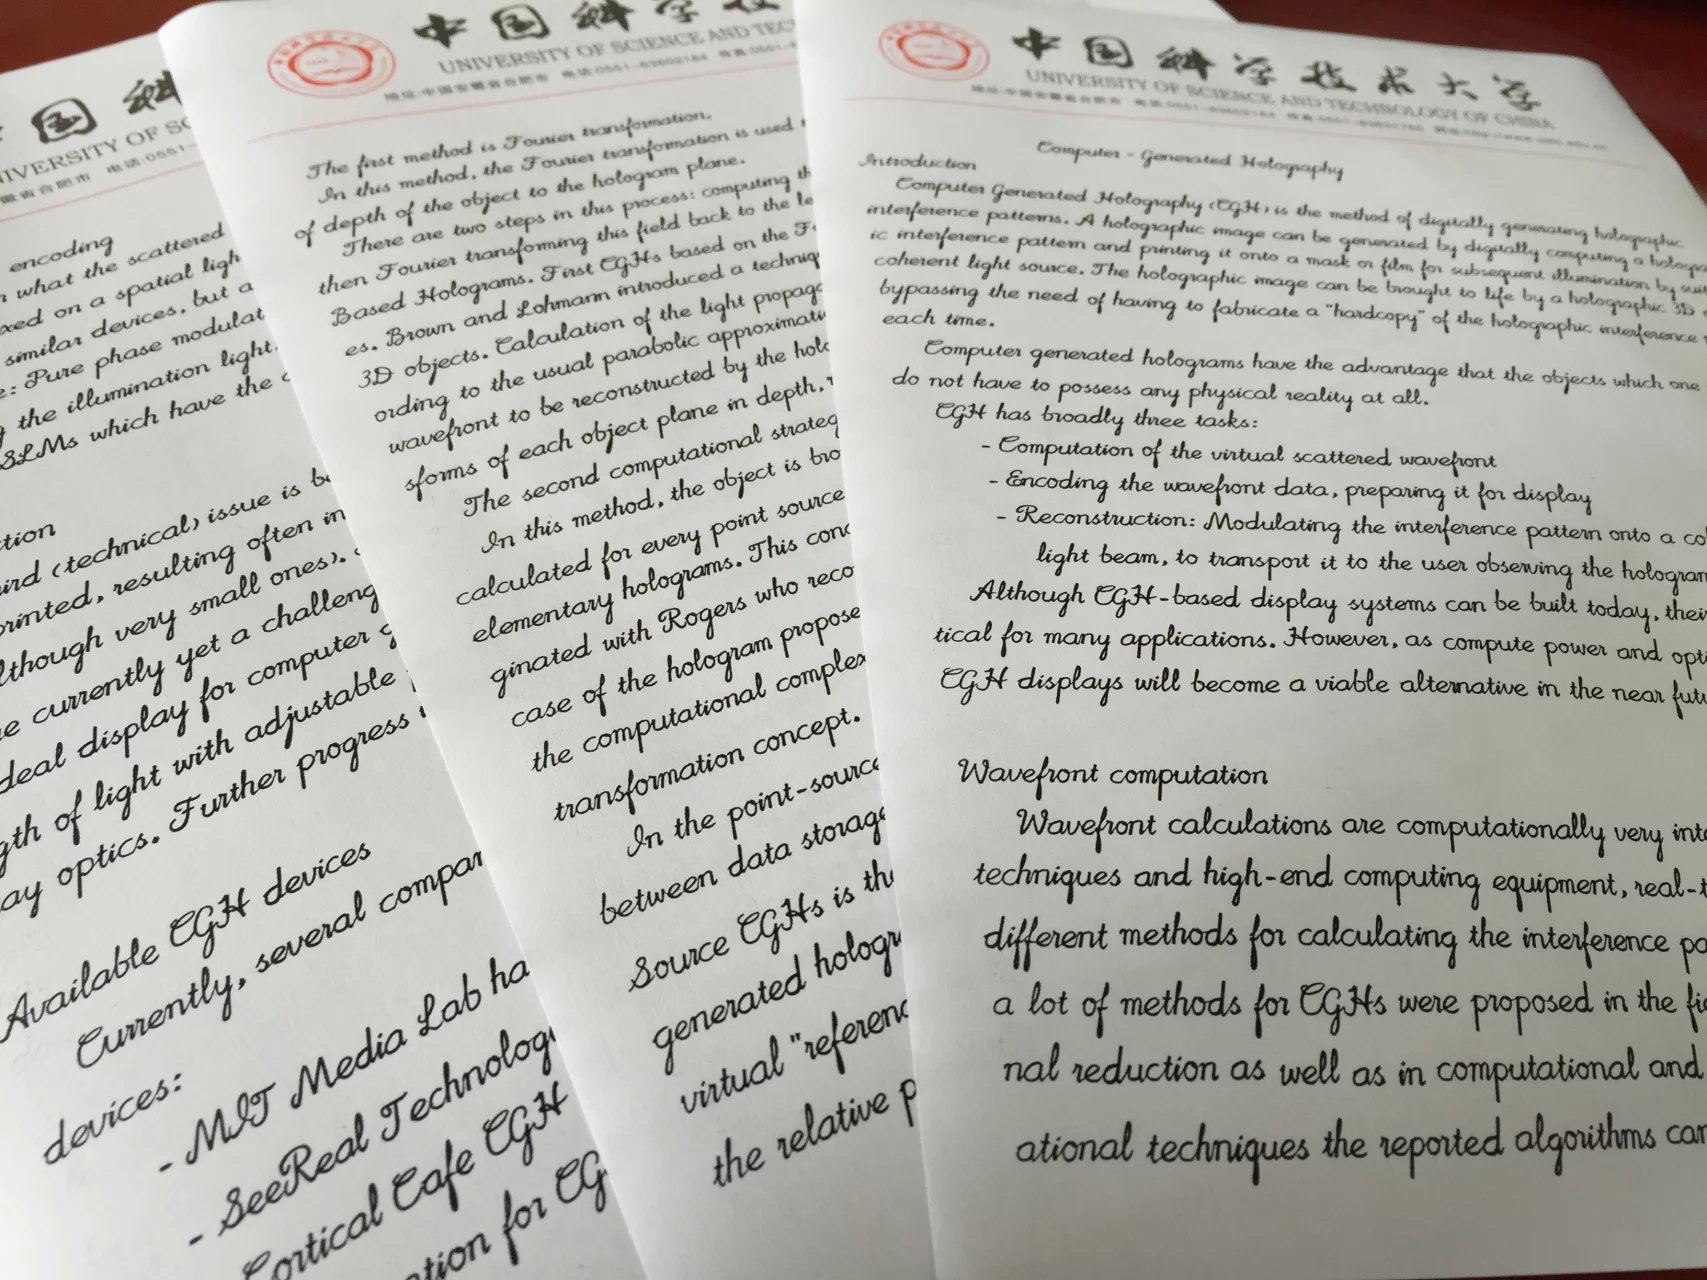 encoding
what the scattered
xed on a spatial ligh
similar devices, but a
e: Pure phase modulat
g the illumination light.
SLMs which have the
tion
ird (technical) issue is be
printed, resulting often in
lthough very small ones).
e currently yet a challeng
deal display for computer g
gth of light with adjustable
ay optics. Further progress
Available CGH devices
Currently, several compan
devices:
- MIT Media Lab ha
- SeeReal Technolog
Cortical Cafe CGH
ation for CG
中国科学技
UNIVERSITY OF SCIENCE AND TEC
地址:中国安徽省合肥市 电话:0551-63602184
The first method is Fourier transformation.
In this method, the Fourier transformation is used
of depth of the object to the hologram plane.
There are two steps in this process: computing th
then Fourier transforming this field back to the le
Based Holograms. First CGHs based on the F
es. Brown and Lohmann introduced a techniq
3D objects. Calculation of the light propaga
ording to the usual parabolic approximati
wavefront to be reconstructed by the holo
sforms of each object plane in depth,
The second computational strateg
In this method, the object is bro
calculated for every point source
elementary holograms. This conc
ginated with Rogers who reco
case of the hologram propose
the computational complex
transformation concept.
In the point-source
between data storage
Source CGHs is the
generated hologr
virtual "referenc
the relative p
中国科学技术大学
UNIVERSITY OF SCIENCE AND TECHNOLOGY OF CHINA
地址:中国安徽省合肥市 电话:0551-63602184
Computer - Generated Holography
Introduction
Computer Generated Holography (CGH) is the method of digitally generating holographic
interference patterns. A holographic image can be generated by digitally computing a hologra
ic interference pattern and printing it onto a mask or film for subsequent illumination by suit
coherent light source. The holographic image can be brought to life by a holographic 3D
bypassing the need of having to fabricate a "hardcopy" of the holographic interference
each time.
Computer generated holograms have the advantage that the objects which one
do not have to possess any physical reality at all.
CGH has broadly three tasks:
- Computation of the virtual scattered wavefront
- Encoding the wavefront data, preparing it for display
- Reconstruction: Modulating the interference pattern onto a co
light beam, to transport it to the user observing the hologram
Although CGH-based display systems can be built today, their
tical for many applications. However, as compute power and opti
CGH displays will become a viable alternative in the near futu
Wavefront computation
Wavefront calculations are computationally very inte
techniques and high-end computing equipment, real-t
different methods for calculating the interference pa
a lot of methods for CGHs were proposed in the fie
nal reduction as well as in computational and
ational techniques the reported algorithms can